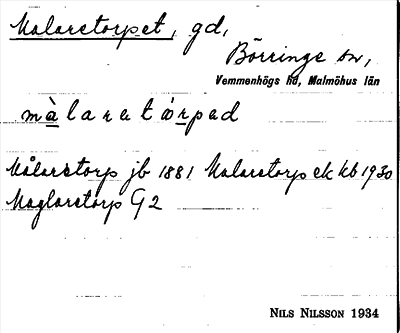 Malaretorpet, gd,
Börringe sn,
Vemmenhögs hd, Malmöhus län
màlaretórpəd
Målaretorp jb 1881 Malaretorp ek kb 1930
Maglaretorp G2
NILS NILSSON 1934